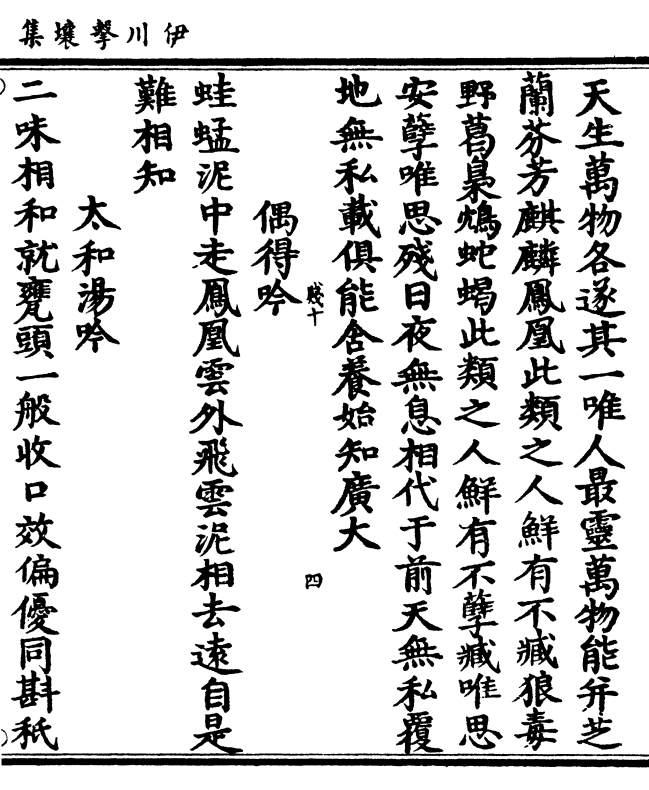 伊川擊壤集
天生萬物各遂其一唯人最靈萬物能并芝
蘭芬芳麒麟鳳凰此類之人鮮有不臧狼毒
野葛梟鴆蛇蝎此類之人鮮有不孽臧唯思
安孽唯思殘日夜無息相代于前天無私覆
地無私載俱能含養始知廣大
偶得吟
蛙蜢泥中走鳳凰雲外飛雲泥相去遠自是
難相知
太和湯吟
二味相和就甕頭一般收口效偏優同斟秪
四